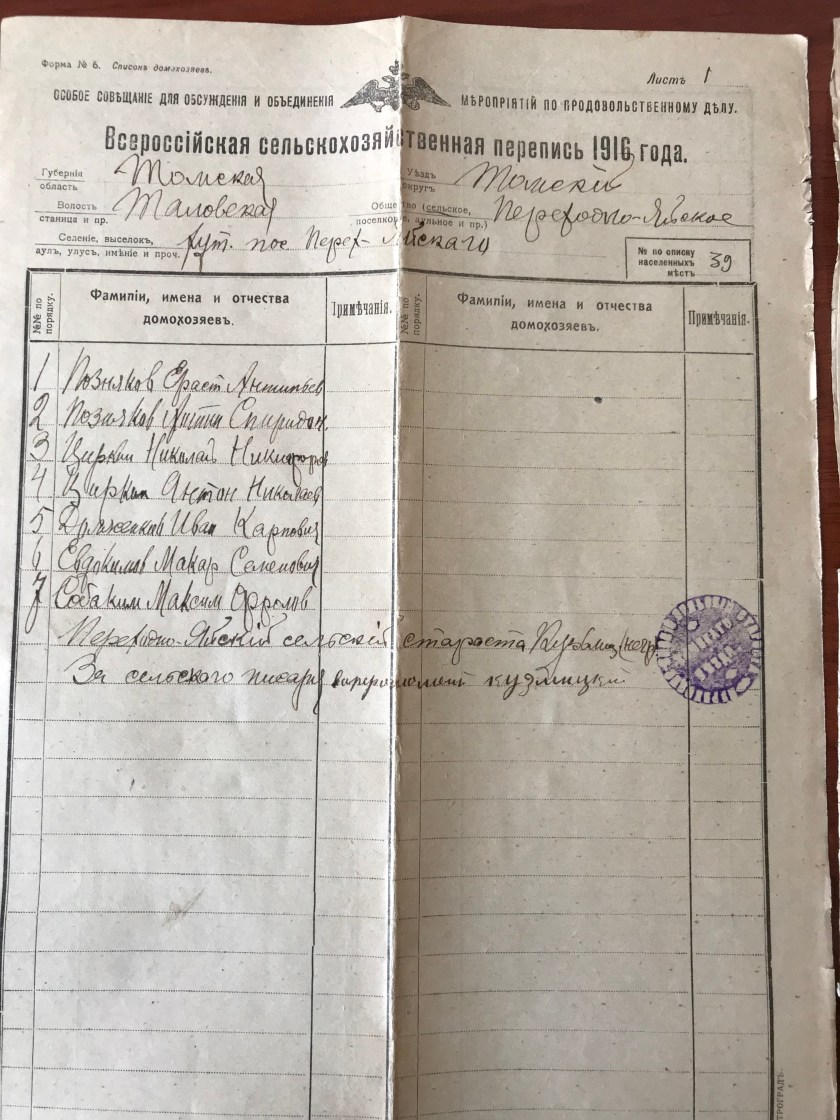 Форма № 6. Списокъ домохозяевъ.
Листъ 1
ОСОБОЕ СОВѢЩАНІЕ ДЛЯ ОБСУЖДЕНІЯ И ОБЪЕДИНЕНІЯ МѢРОПРІЯТІЙ ПО ПРОДОВОЛЬСТВЕННОМУ ДѢЛУ.
Всероссійская сельскохозяйственная перепись 1916 года.
Губернія область Томская Уѣздъ округъ Томскій
Волость станица и пр. Таловская Общество (сельское, поселковое, аульное и пр.) Переходно-Яйское
Селеніе, выселокъ, аулъ, улусъ, имѣніе и проч. хут. пос Перех-Яйскаго
№ по списку населенныхъ мѣстъ 39
№№ по порядку. Фамиліи, имена и отчества домохозяевъ. Примѣчанія. №№ по порядку. Фамиліи, имена и отчества домохозяевъ. Примѣчанія.
1 Позняков Ераст Антипьев
2 Позняков Антип Спиридон
3 Циркин Николай Никифоров
4 Циркин Антон Николаев
5 Иван Карпович
6 Евдокимов Макар Семенович
7 Собакин Максим Фролов
Переходно-Яйскій сельскій староста
За сельского писаря Кузмицкій